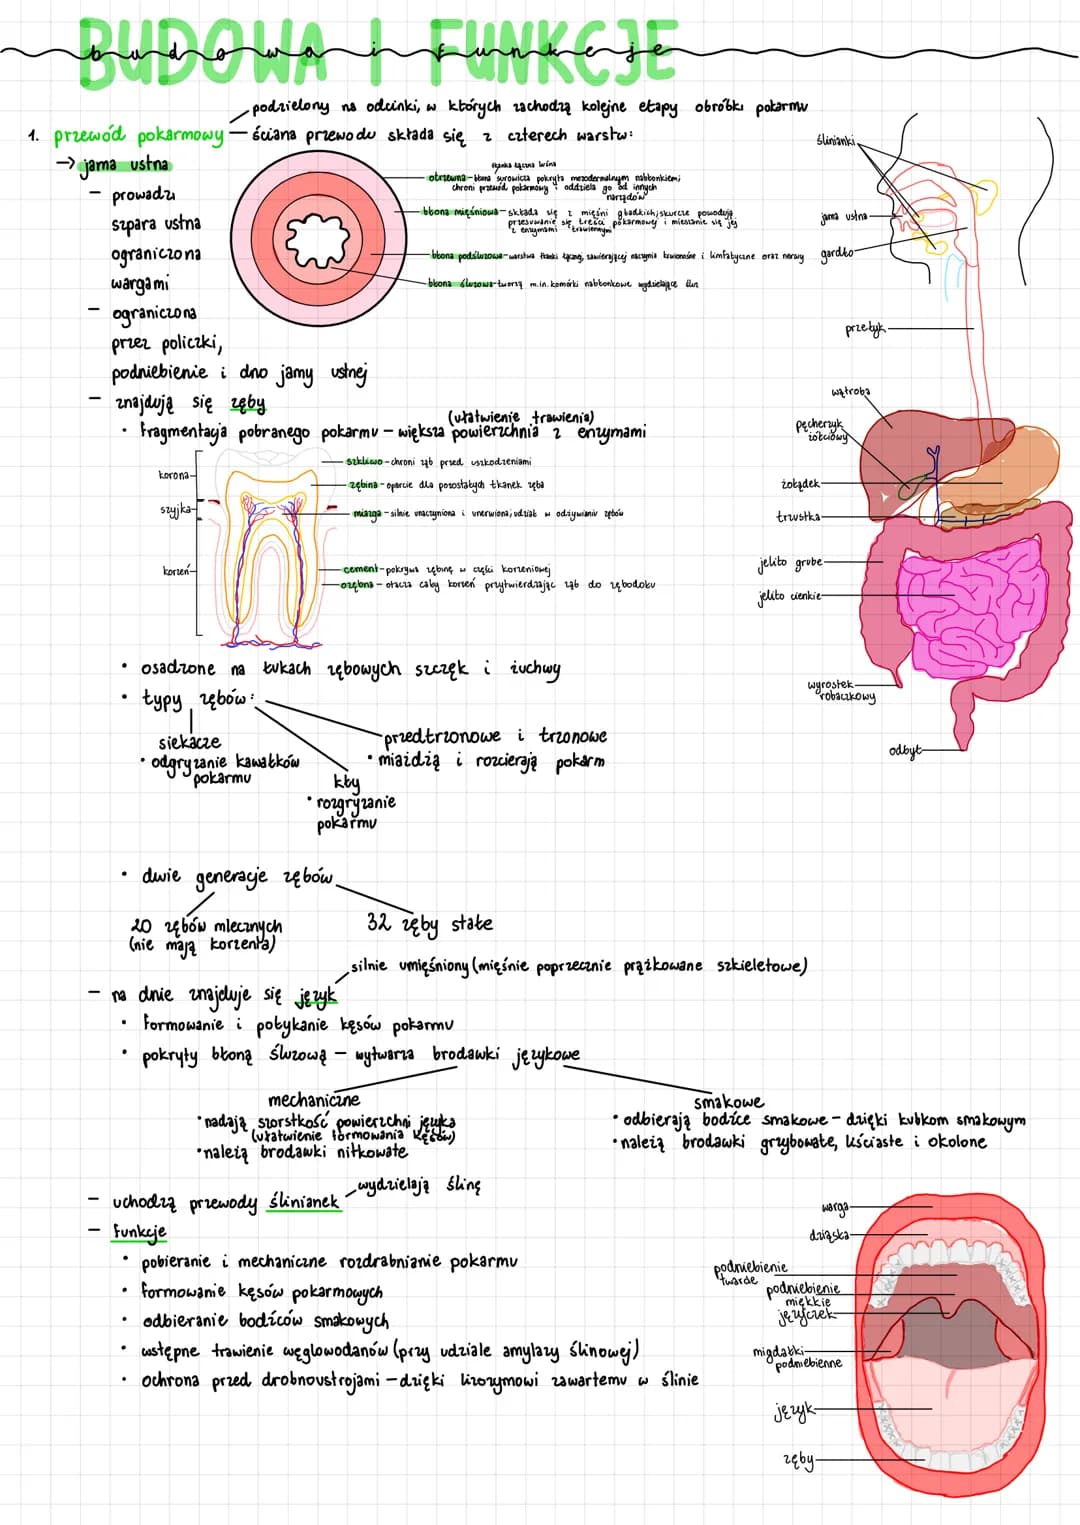 BUDOWA I FUNKCJE
budowa i funkcje
podzielony na odcinki, w których zachodzą kolejne etapy obróbki pokarmu
1. przewód pokarmowy — ściana przewodu składa się z czterech warstw:
→ jama ustna
- prowadzi
szpara ustna
ograniczona
wargami
- ograniczona
przez policzki,
podniebienie i dno jamy ustnej
tkanka łączna luźna
otrzewna - błona surowicza pokryta mezodermalnym nabłonkiem;
chroni przewód pokarmowy i oddziela go od innych
narządów
błona mięśniowa - składa się z mięśni gładkich; skurcze powodują
przesuwanie się treści pokarmowej i mieszanie się jej
z enzymami trawiennymi
błona podśluzowa - warstwa tkanki łącznej, zawierającej naczynia krwionośne i limfatyczne oraz nerwy
błona śluzowa - tworzą m.in. komórki nabłonkowe wydzielające śluz
ślinianki
jama ustna
gardło
przełyk
wątroba
pęcherzyk
żółciowy
żołądek
trzustka
jelito grube
jelito cienkie
wyrostek
robaczkowy
odbyt
- znajdują się zęby
(ułatwienie trawienia)
• fragmentacja pobranego pokarmu — większa powierzchnia z enzymami
korona
szyjka
korzeń
szkliwo - chroni ząb przed uszkodzeniami
zębina - oparcie dla pozostałych tkanek zęba
miazga - silnie unaczyniona i unerwiona; udział w odżywianiu zębów
cement - pokrywa zębinę w części korzeniowej
ozębna - otacza cały korzeń przytwierdzając ząb do zębodołu
• osadzone na łukach zębowych szczęk i żuchwy
• typy zębów:
siekacze
• odgryzanie kawałków
pokarmu
kły
• rozgryzanie
pokarmu
przedtrzonowe i trzonowe
• miażdżą i rozcierają pokarm
• dwie generacje zębów
20 zębów mlecznych
(nie mają korzenia)
32 zęby stałe
silnie umięśniony (mięśnie poprzecznie prążkowane szkieletowe)
- na dnie znajduje się język
• formowanie i połykanie kęsów pokarmu
• pokryty błoną śluzową — wytwarza brodawki językowe
mechaniczne
• nadają szorstkość powierzchni języka
(ułatwienie formowania kęsów)
• należą brodawki nitkowate
smakowe
• odbierają bodźce smakowe - dzięki kubkom smakowym
• należą brodawki grzybowate, liściaste i okolone
- uchodzą przewody ślinianek
wydzielają ślinę
- funkcje
• pobieranie i mechaniczne rozdrabnianie pokarmu
• formowanie kęsów pokarmowych
• odbieranie bodźców smakowych
• wstępne trawienie węglowodanów (przy udziale amylazy ślinowej)
• ochrona przed drobnoustrojami - dzięki lizozymowi zawartemu w ślinie
warga
dziąsła
podniebienie
twarde
podniebienie
miękkie
języczek
migdałki
podniebienne
język
zęby